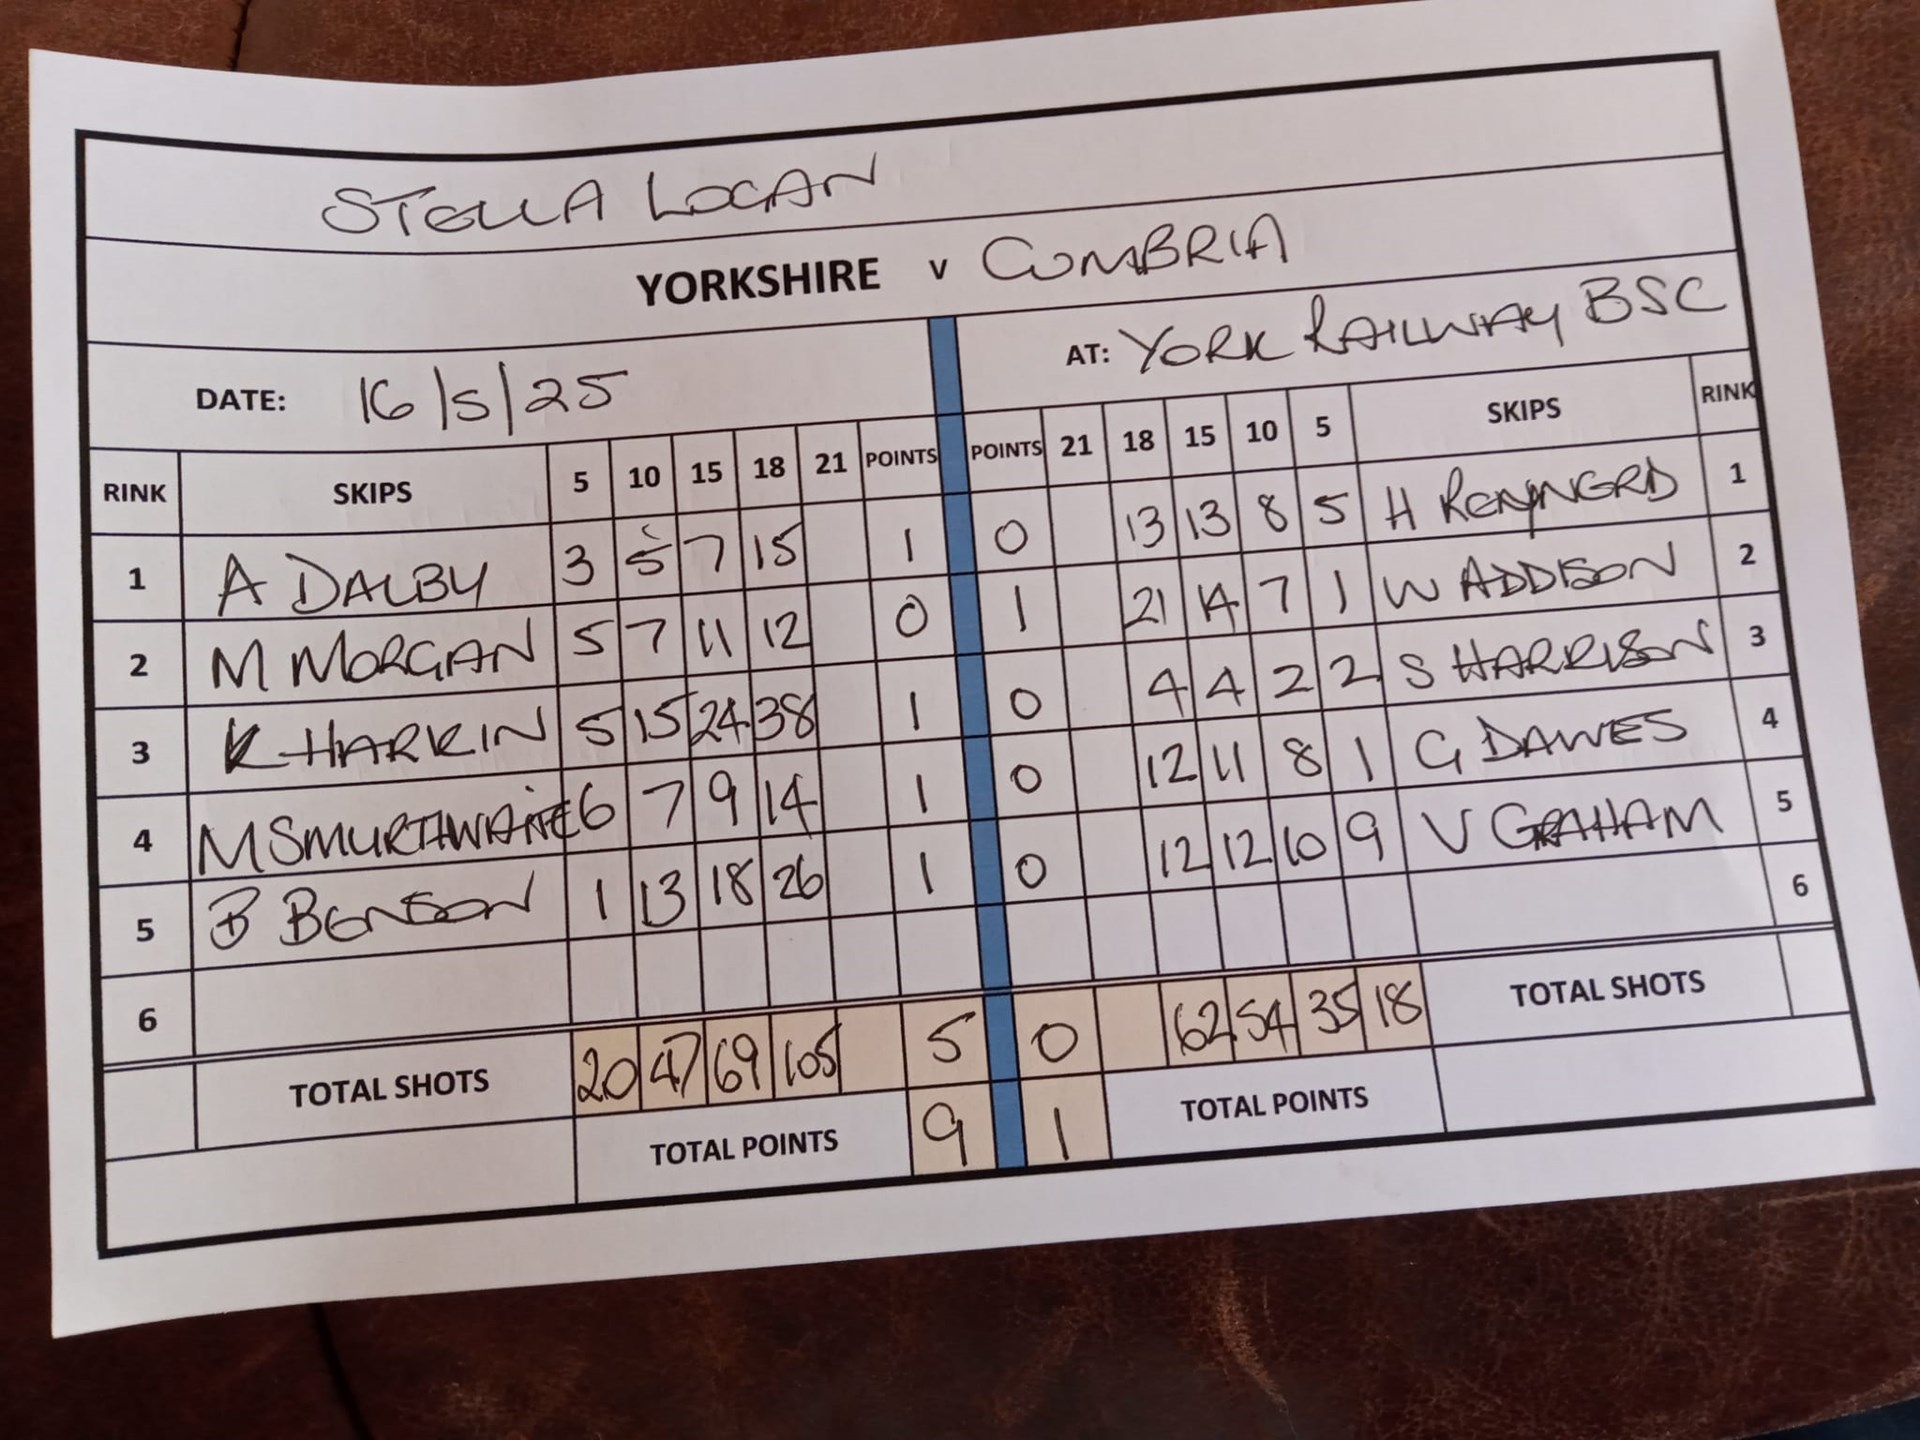 STELLA LOGAN
YORKSHIRE v CUMBRIA
DATE: 16/5/25 AT: YORK RAILWAY BSC
RINK SKIPS 5 10 15 18 21 POINTS POINTS 21 18 15 10 5 SKIPS RINK
1 A DALBY 3 5 7 15 1 0 13 13 8 5 H 1
2 M MORGAN 5 7 11 12 0 1 21 14 7 1 W ADDISON 2
3 K HARKIN 5 15 24 38 1 0 4 4 2 2 S HARRISON 3
4 M SMURTHWAITE 6 7 9 14 1 0 12 11 8 1 G DAWES 4
5 B BENSON 1 13 18 26 1 0 12 12 10 9 V GRAHAM 5
6 6
TOTAL SHOTS 20 47 69 105 5 0 62 54 35 18 TOTAL SHOTS
TOTAL POINTS 9 1 TOTAL POINTS